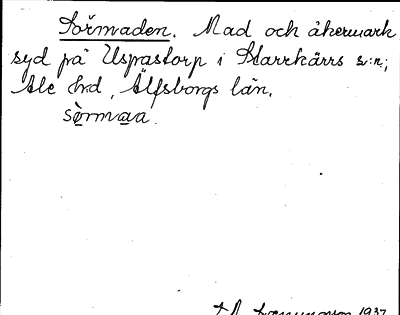 Sörmaden. Mad och åkermark
syd på Uspastorp i Starrkärrs s:n;
Ale hrd, Älfsborgs län.
sòrmaa.
1937